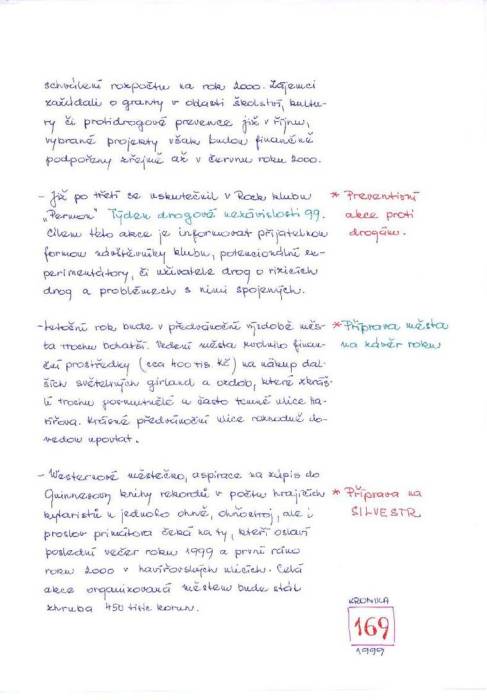 schválení rozpočtu na rok 2000. Zájemci
zažádali o granty v oblasti školství, kultu-
ry či protidrogové prevence již v říjnu,
vybrané projekty však budou finančně
podpořeny zřejmě až v červnu roku 2000.
- Již po třetí se uskutečnil v Rock klubu
"Permon" Týden drogové nezávislosti 99.
Cílem této akce je informovat přijatelnou
formou návštěvníky klubu, potencionální ex-
perimentátory, či uživatele drog o rizicích
drog a problémech s nimi spojených.
* Preventivní
akce proti
drogám.
- Letošní rok bude v předvánoční výzdobě měs-
ta trochu bohatší. Vedení města uvolnilo finan-
ční prostředky (cca 400 tis. Kč) na nákup dal-
ších světelných girland a ozdob, které zkráš-
lí trochu posmutnělé a často temné ulice Ha-
vířova. Krásné předvánoční ulice rozhodně do-
vedou upoutat.
* Příprava města
na závěr roku
- Westernové městečko, aspirace na zápis do
Guinnesovy knihy rekordů v počtu hrajících
kytaristů u jednoho ohně, ohňostroj, ale i
proslov primátora čeká na ty, kteří oslaví
poslední večer roku 1999 a první ráno
roku 2000 v havířovských ulicích. Celá
akce organizovaná městem bude stát
zhruba 450 tisíc korun.
* Příprava na
SILVESTR
KRONIKA
169
1999